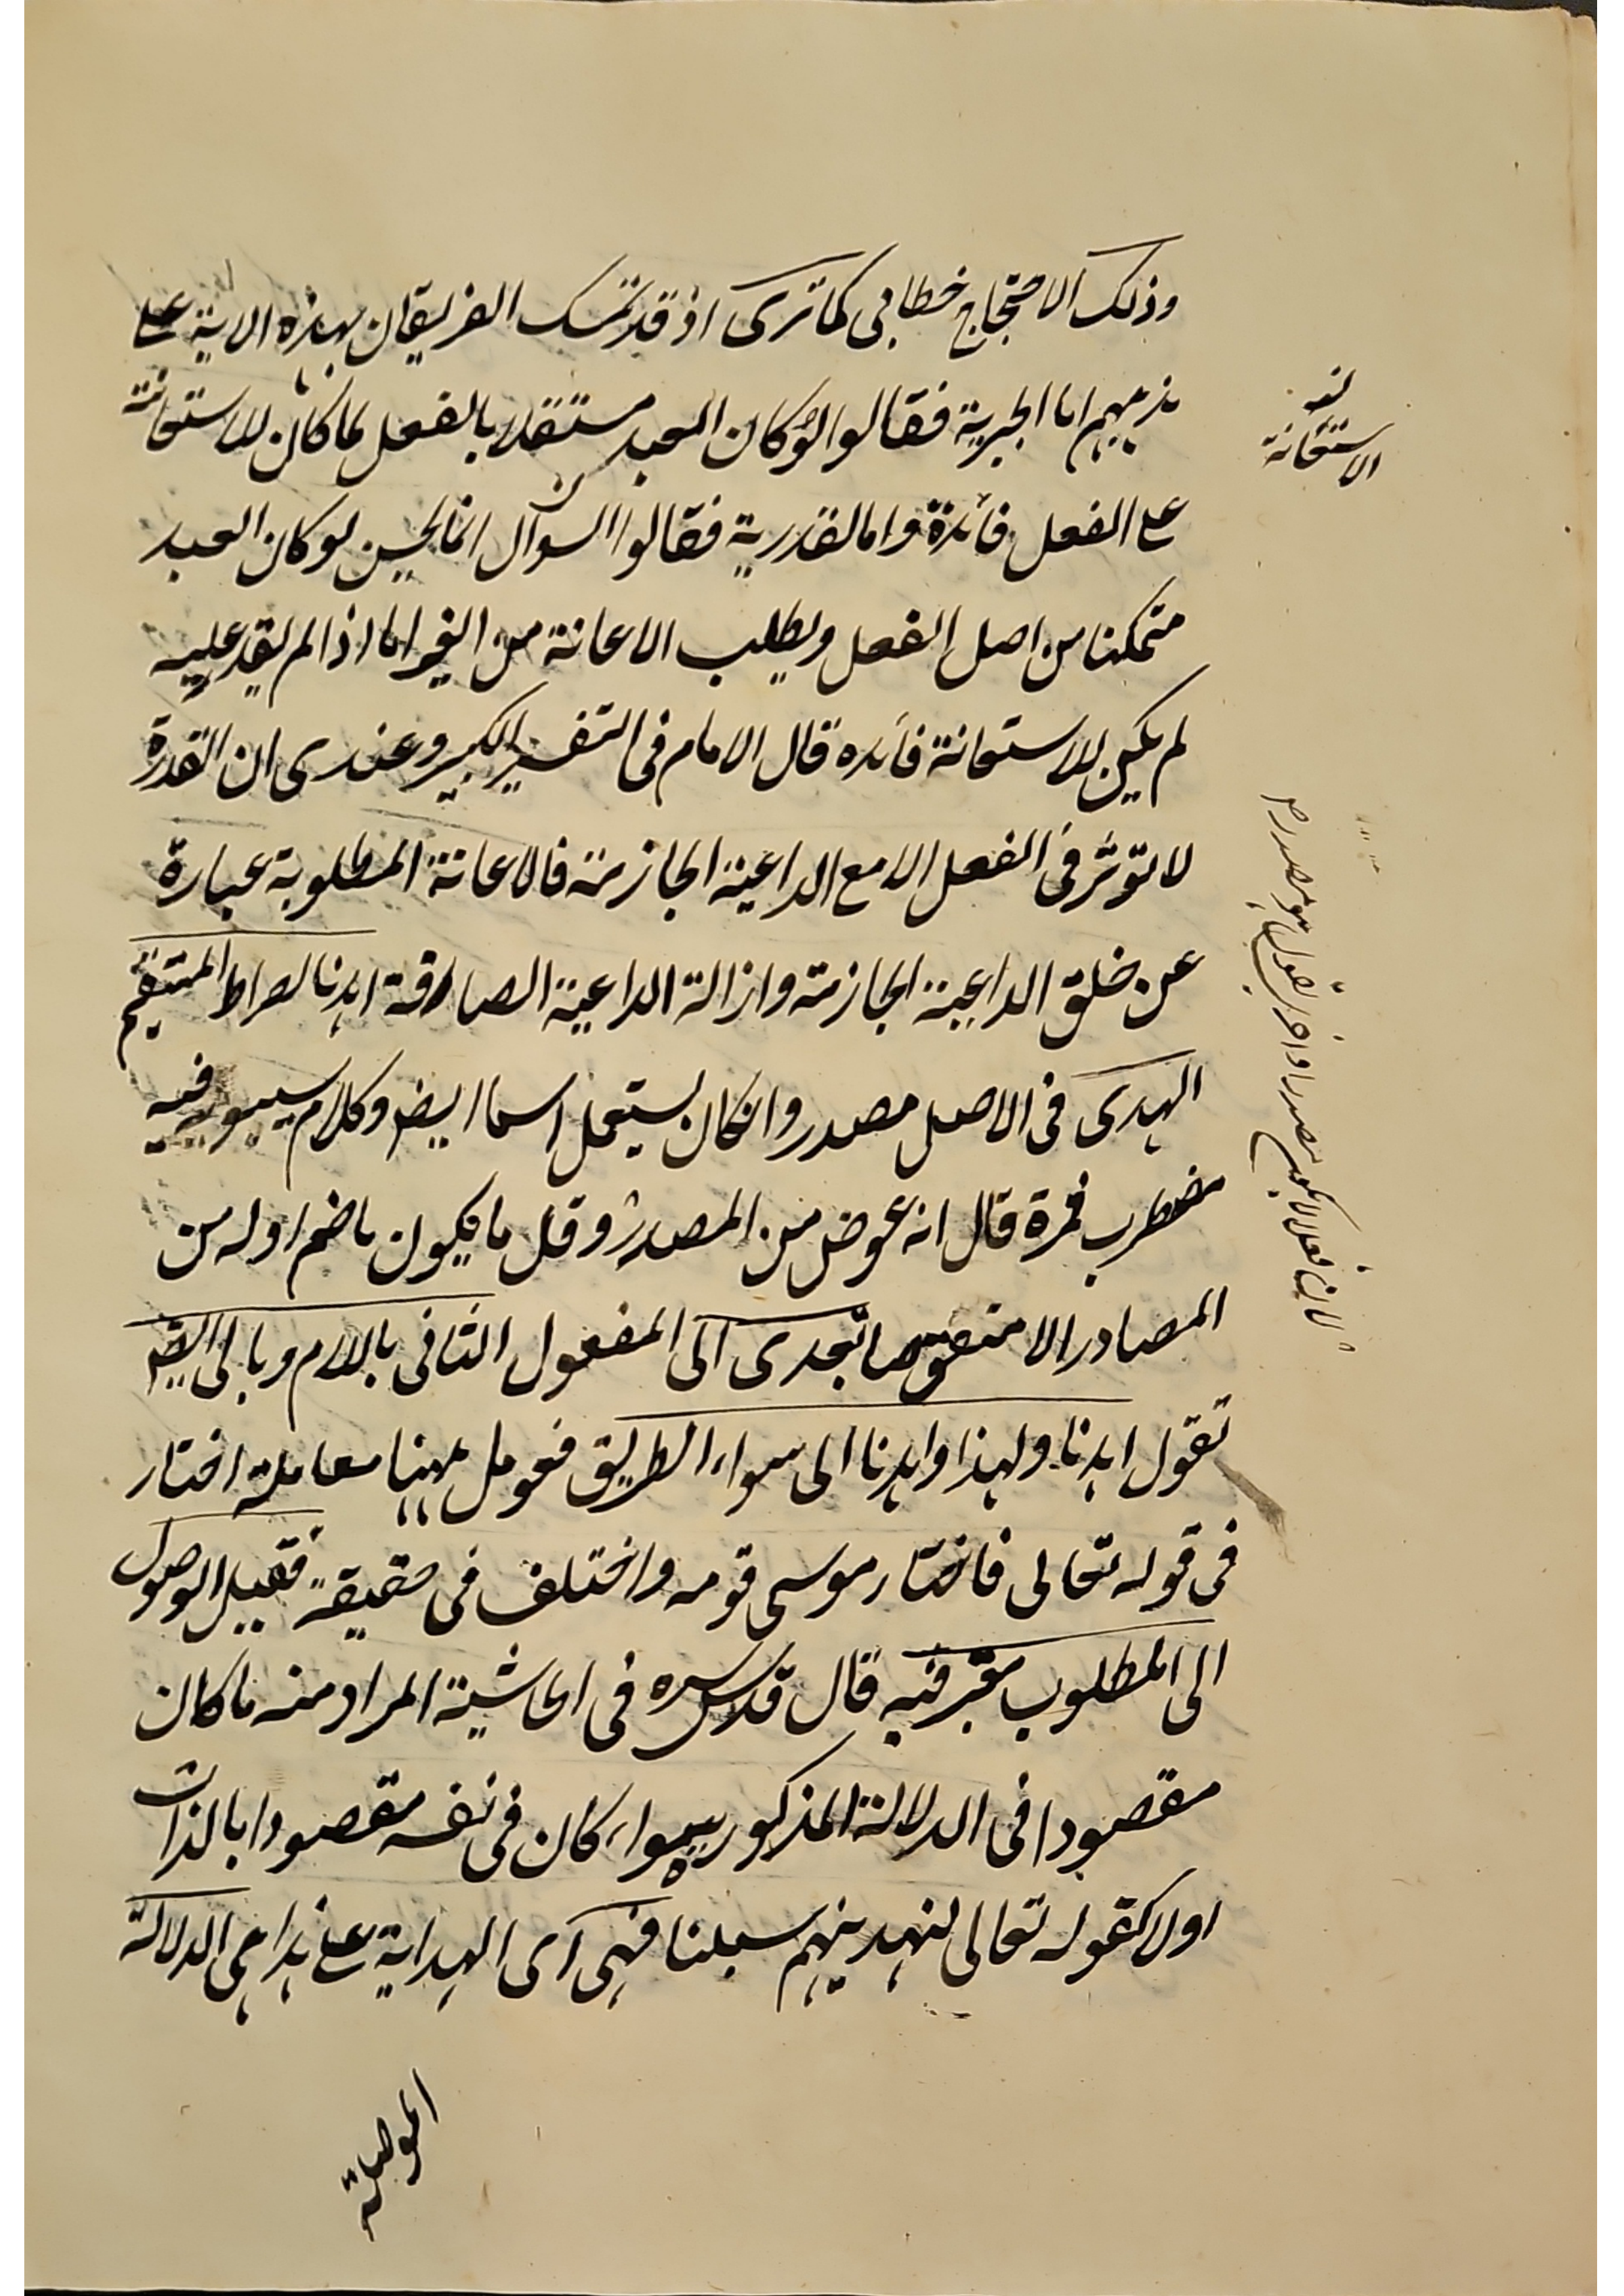 وذلك الاحتجاج خطابى كما ترى اذ قد تمسك الفريقان بهذه الاية على
مذهبهم اما الجبرية فقالوا لو كان العبد مستقلا بالفعل لما كان للاستعانة
على الفعل فائدة واما القدرية فقالوا السؤال انما يحسن لو كان العبد
متمكنا من اصل الفعل ويطلب الاعانة من الغير اما اذا لم يقدر عليه
لم يكن للاستعانة فائده قال الامام فى التفسير الكبير وعندى ان القدرة
لا تؤثر فى الفعل الا مع الداعية الجازمة فالاعانة المطلوبة عبارة
عن خلق الداعية الجازمة وازالة الداعية الصارفة اهدنا الصراط المستقيم
الهدى فى الاصل مصدر وان كان يستعمل اسما ايضا وكلام سيبويه فيه
مضطرب فمرة قال انه عوض من المصدر وقل ما يكون ما ضم اوله من
المصادر الا منقوصا تعدى الى المفعول الثانى باللام وبالى
تقول اهدنا ولهذا واهدنا الى سواء الطريق فعومل ههنا معاملة اختار
فى قوله تعالى فاختار موسى قومه واختلف فى حقيقة فقيل الوصول
الى المطلوب معتبر فيه قال قدس سره فى الحاشية المراد منه ما كان
مقصودا فى الدلالة المذكورة سواء كان فى نفسه مقصودا بالذات
اولا كقوله تعالى لنهدينهم سبلنا فهى اى الهداية على هذا هى الدلالة
الموصلة
الاستعانة
لان فعلا لا يكون مصدرا